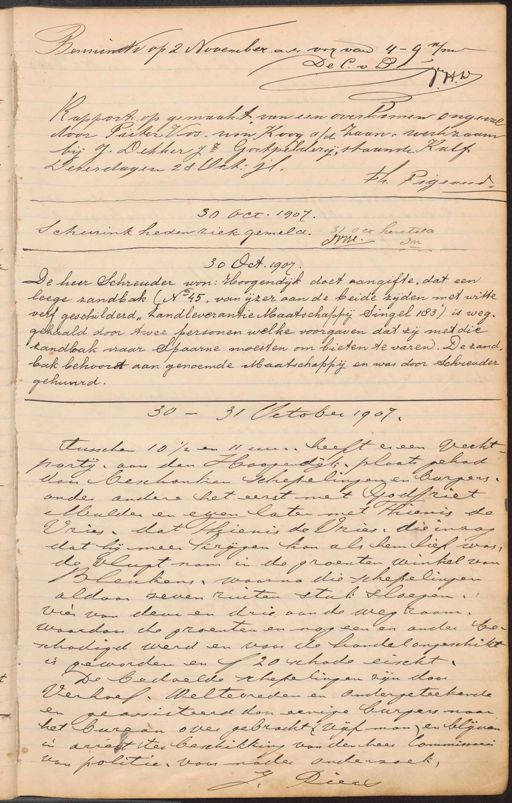 op 2 November a.s. vrij van 4 - 9 n/m
De C. v P.
Rapport op gemaakt van een overkomen ongeval
door Pieter Vos. won. Koog a/d Zaan. werkzaam
bij J. Dekker Jz Gortpelderij, staande Kalf
Donderdagen 28 Oct. jl.
30 Oct. 1907.
Scheurink heden ziek gemeld. 31 Oct hersteld
30 Oct. 1907.
De heer Schreuder won: Hoogendijk doet aangifte, dat een
leege zandbak (No 45, van ijzer aan de beide zijden met witte
verf geschilderd, Zandleverantie Maatschappij Singel 183) is weg-
gehaald door twee personen welke voorgaven dat zij met die
zandbak naar Spaarne moesten om bieten te varen. De zand
bak behoort aan genoemde Maatschappij en was door Schreuder
gehuurd.
30 - 31 October 1907.
Tusschen 10 1/2 en 11 uur. heeft er een vecht-
partij. aan den Hoogendijk. plaats gehad
van beschonken schepelingen en burgers.
onder andere het eerst met Godfriet
Mulder en even later met Thienis de
Vries. dat Thienis de Vries. die inzag
dat hij meer krijgen kon als hem lief was,
de vlugt nam in de groenten winkel van
Blenkens. waarna die schepelingen
aldaar zeven ruiten stuk sloegen.
vier van deur en drie van de weg raam.
waardoor de groenten en nog een en ander be-
schadigd werd en voor de handel ongeschikt
is geworden en f 20 schade eischt.
De bedoelde schepelingen zijn door
Verhoef. Weltevreden en ondergeteekende
en geassisteerd door eenige burgers naar
het bureau over gebracht (vijf man) en blijven
in arrest ter beschikking van den heer Commissaris
van politie. voor nader onderzoek,